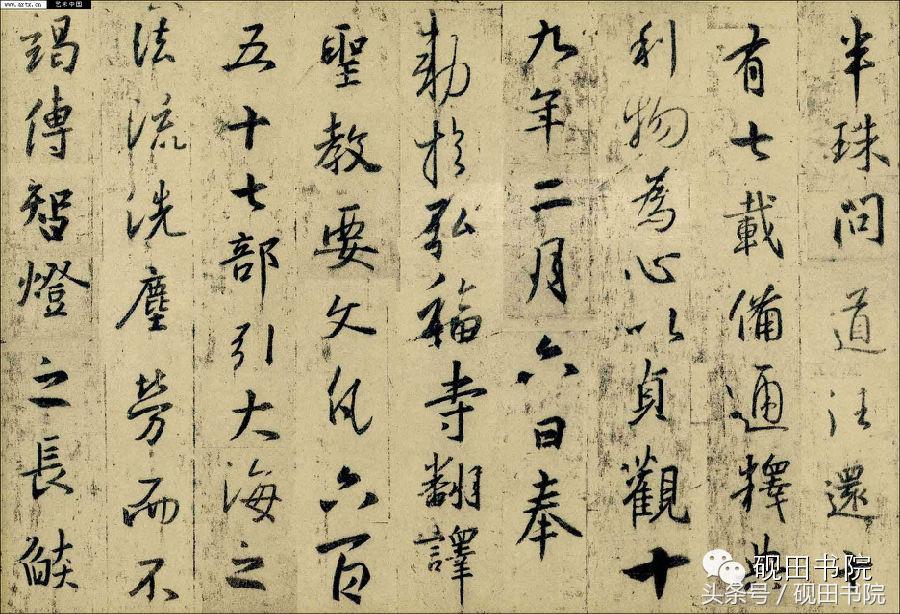 半珠問道往還十
有七載備通釋典
利物為心以貞觀十
九年二月六日奉
勅於弘福寺翻譯
聖教要文凡六百
五十七部引大海之
法流洗塵勞而不
竭傳智燈之長燄
www.artx.cn 艺术中国
砚田书院
头条号 / 砚田书院